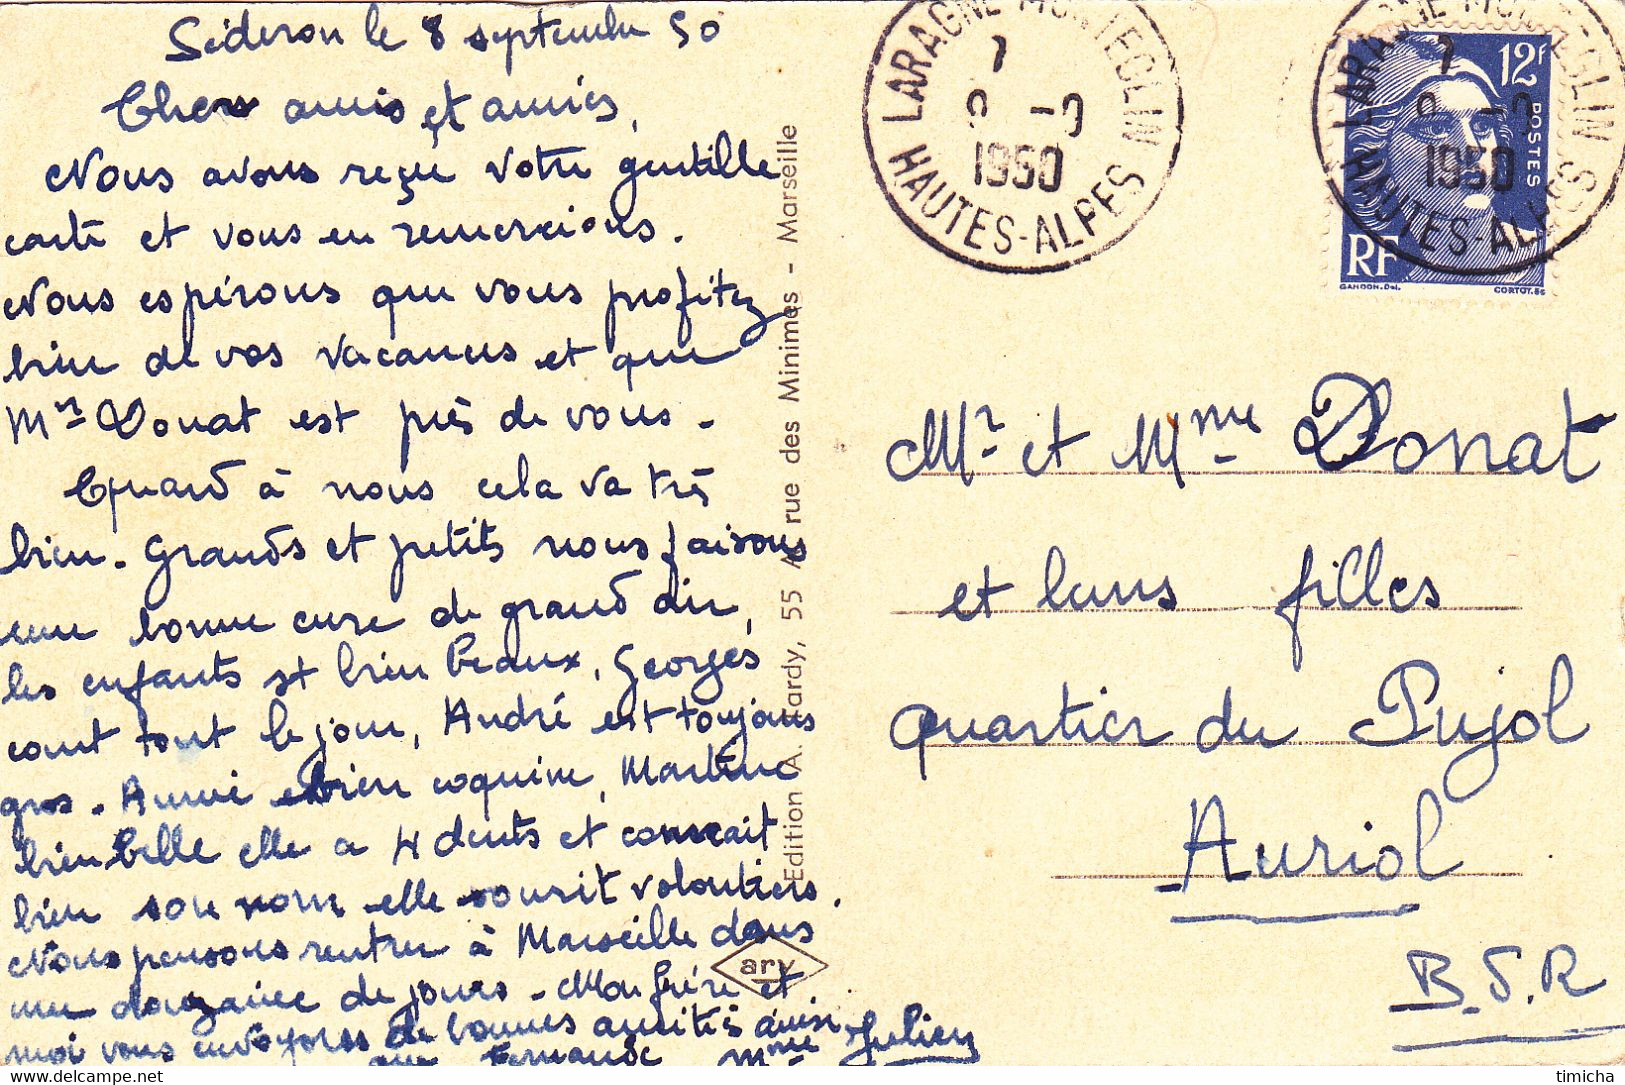 Séderon le 8 septembre 50
Chers amis et amies,
Nous avons reçu votre gentille
carte et vous en remercions.
Nous espérons que vous profitez
bien de vos vacances et que
Mr Donat est près de vous.
Quand à nous cela va très
bien. Grands et petits nous faisons
une bonne cure de grand air,
les enfants st bien beaux, Georges
court tout le jour, André est toujours
gros. Annie est bien coquine, Martine
bien belle elle a 4 dents et connait
bien son nom elle sourit volontiers.
Nous pensons rentrer à Marseille dans
une douzaine de jours. Mon frère et
moi vous envoyons de bonnes amitiés ainsi
que Fernande Mme Julien
Edition A. Tardy, 55 A rue des Minimes - Marseille
ary
LARAGNE MONTEGLIN
7
9 -9
1950
HAUTES-ALPES
LARAGNE MONTEGLIN
7
9 -9
1950
HAUTES-ALPES
12f
POSTES
RF
GANDON.Del.
CORTOT.Sc
Mr et Mme Donat
et leurs filles
quartier du Pujol
Auriol
B.D.R
timicha